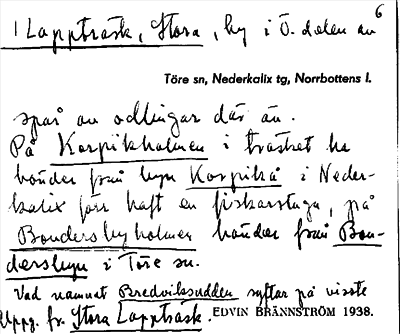 6
1 Lappträsk, Stora, by i Ö. delen av
Töre sn, Nederkalix tg, Norrbottens l.
spår av odlingar där än.
På Korpikholmen i träsket ha
bönder från byn Korpikå i Neder-
kalix förr haft en fiskarstuga, på
Bondersbyholmen bönder från Bon-
dersbyn i Töre sn.
Vad namnet Bredviksudden syftar på visste
Uppg. fr. Stora Lappträsk. EDVIN BRÄNNSTRÖM 1938.